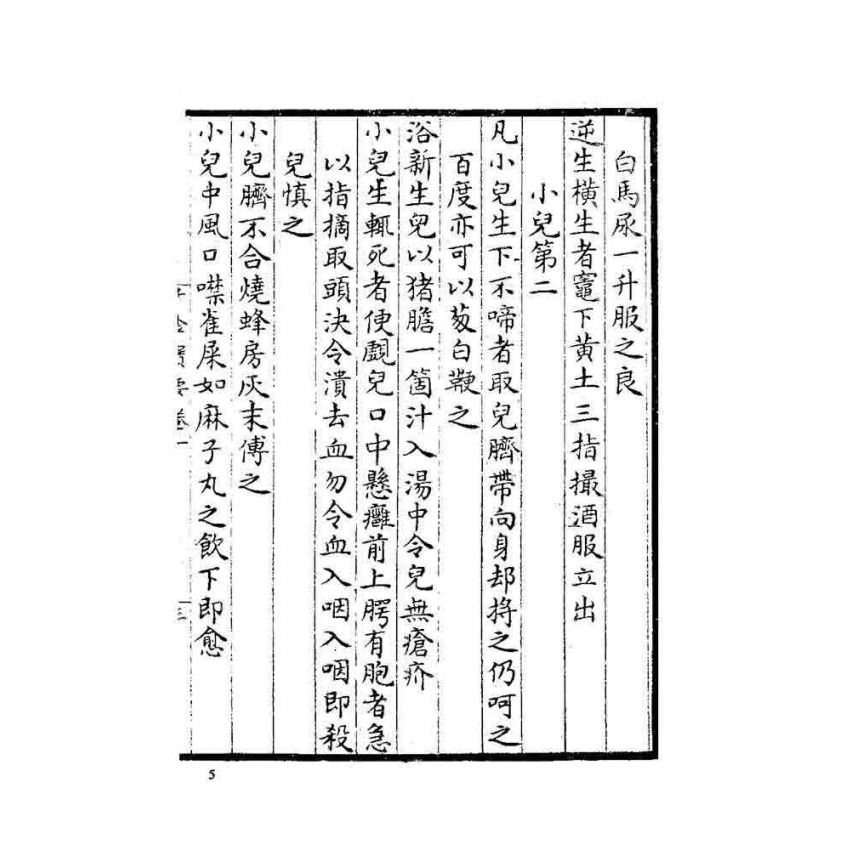 白馬尿一升服之良
逆生橫生者竈下黃土三指撮酒服立出
小兒第二
凡小兒生下不啼者取兒臍帶向身却捋之仍呵之
百度亦可以葱白鞭之
浴新生兒以猪膽一箇汁入湯中令兒無瘡疥
小兒生輒死者便覻兒口中懸癰前上腭有胞者急
以指摘取頭決令潰去血勿令血入咽入咽即殺
兒慎之
小兒臍不合燒蜂房灰末傅之
小兒中風口噤雀屎如麻子丸之飲下即愈
千金寶要卷一
5